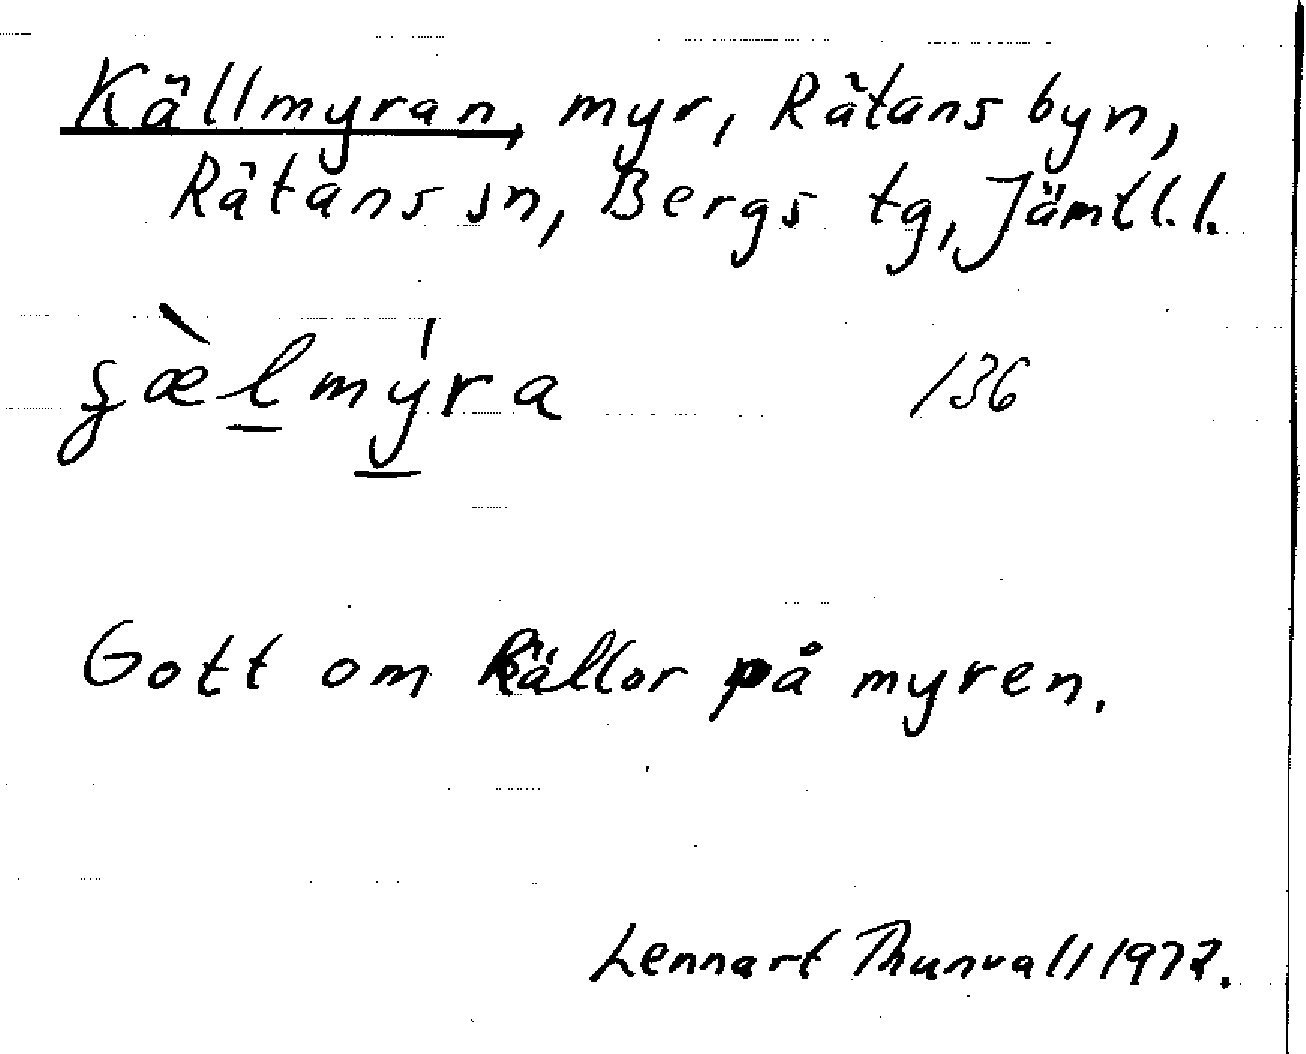 Källmyran, myr, Rätans byn,
Rätans sn, Bergs tg, Jämtl.l.
136
Gott om källor på myren.
Lennart Thunvall 1972.